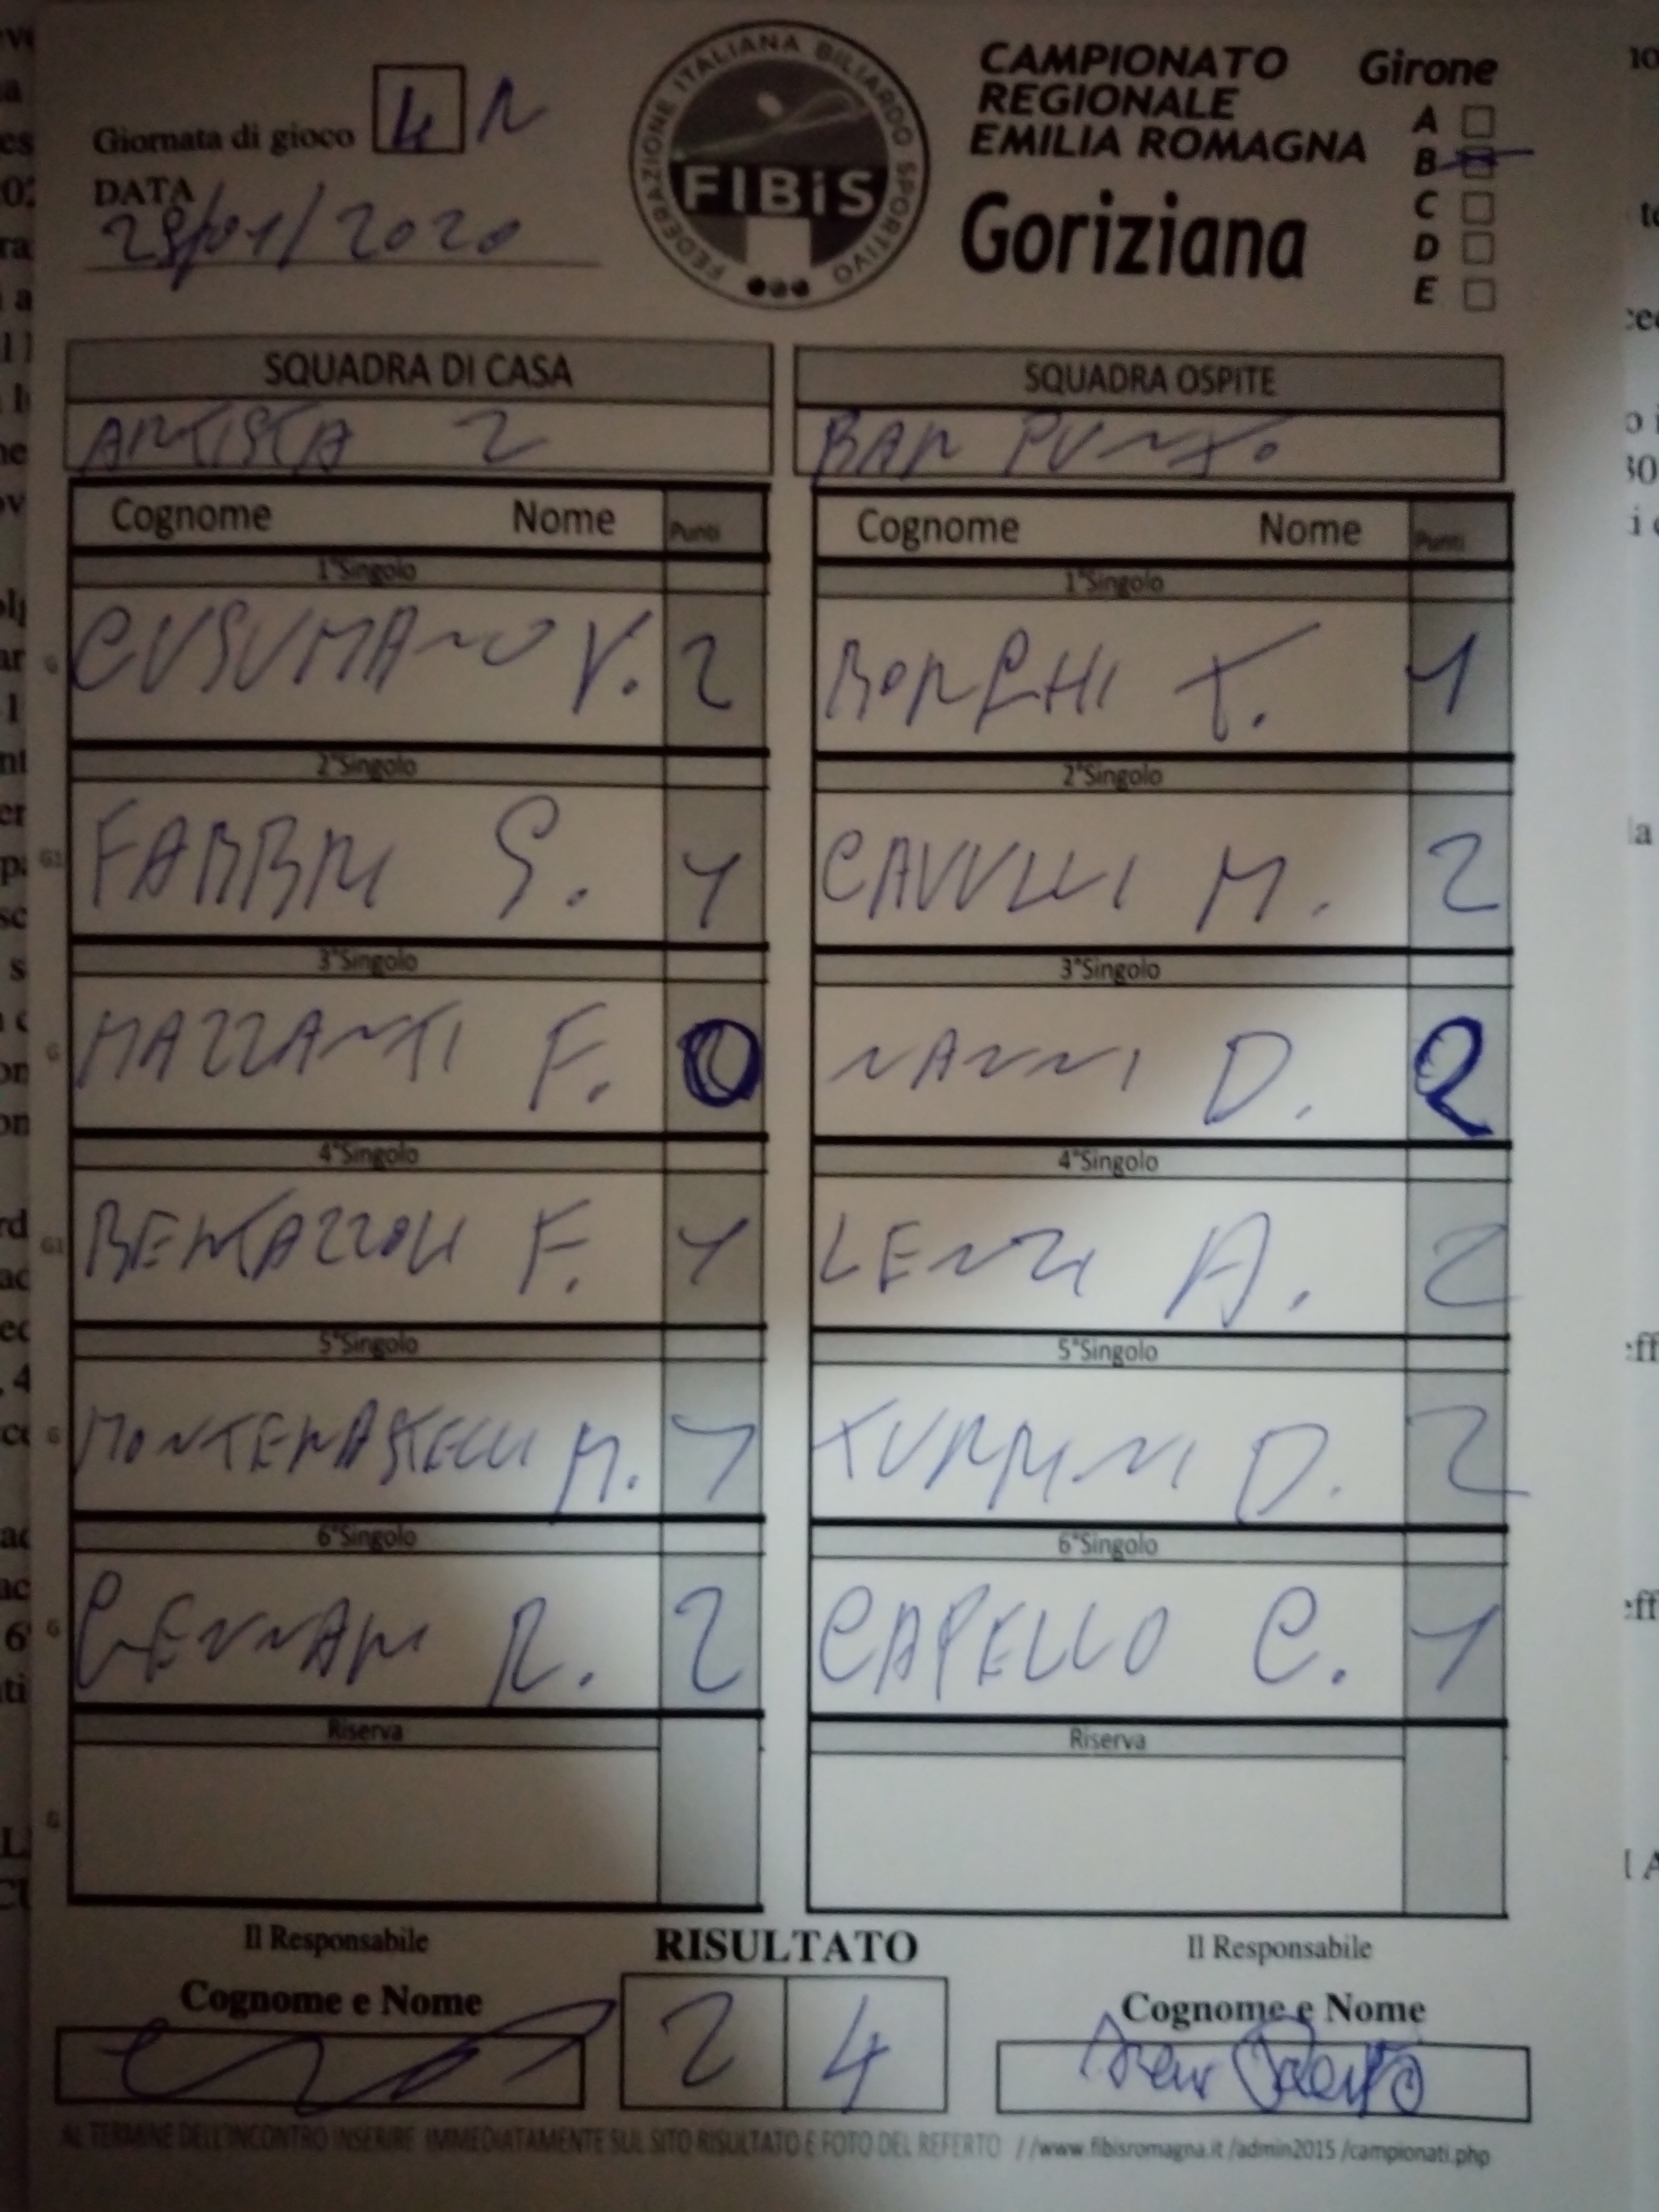 Giornata di gioco 4 R
DATA
29/01/2020
FEDERAZIONE ITALIANA BILIARDO SPORTIVO
FIBiS
CAMPIONATO
REGIONALE
EMILIA ROMAGNA
Goriziana
Girone
A
B
C
D
E
SQUADRA DI CASA SQUADRA OSPITE
ARTISTA 2 BAR PUNTO
Cognome Nome Punti Cognome Nome Punti
1°Singolo 1°Singolo
G CUSUMANO V. 2 BORGHI T. 1
2°Singolo 2°Singolo
G1 FABBRI G. 1 CAVULLI M. 2
3°Singolo 3°Singolo
G MAZZANTI F. 0 NANNI D. 2
4°Singolo 4°Singolo
G1 BENTAZZOLI F. 1 LENZI A. 2
5°Singolo 5°Singolo
G MONTEMASTELLI M. 1 TURRINI D. 2
6°Singolo 6°Singolo
G GENNARI R. 2 CAPELLO C. 1
Riserva Riserva
G
Il Responsabile RISULTATO Il Responsabile
Cognome e Nome 2 4 Cognome e Nome
AL TERMINE DELL'INCONTRO INSERIRE IMMEDIATAMENTE SUL SITO RISULTATO E FOTO DEL REFERTO //www.fibisromagna.it/admin2015/campionati.php